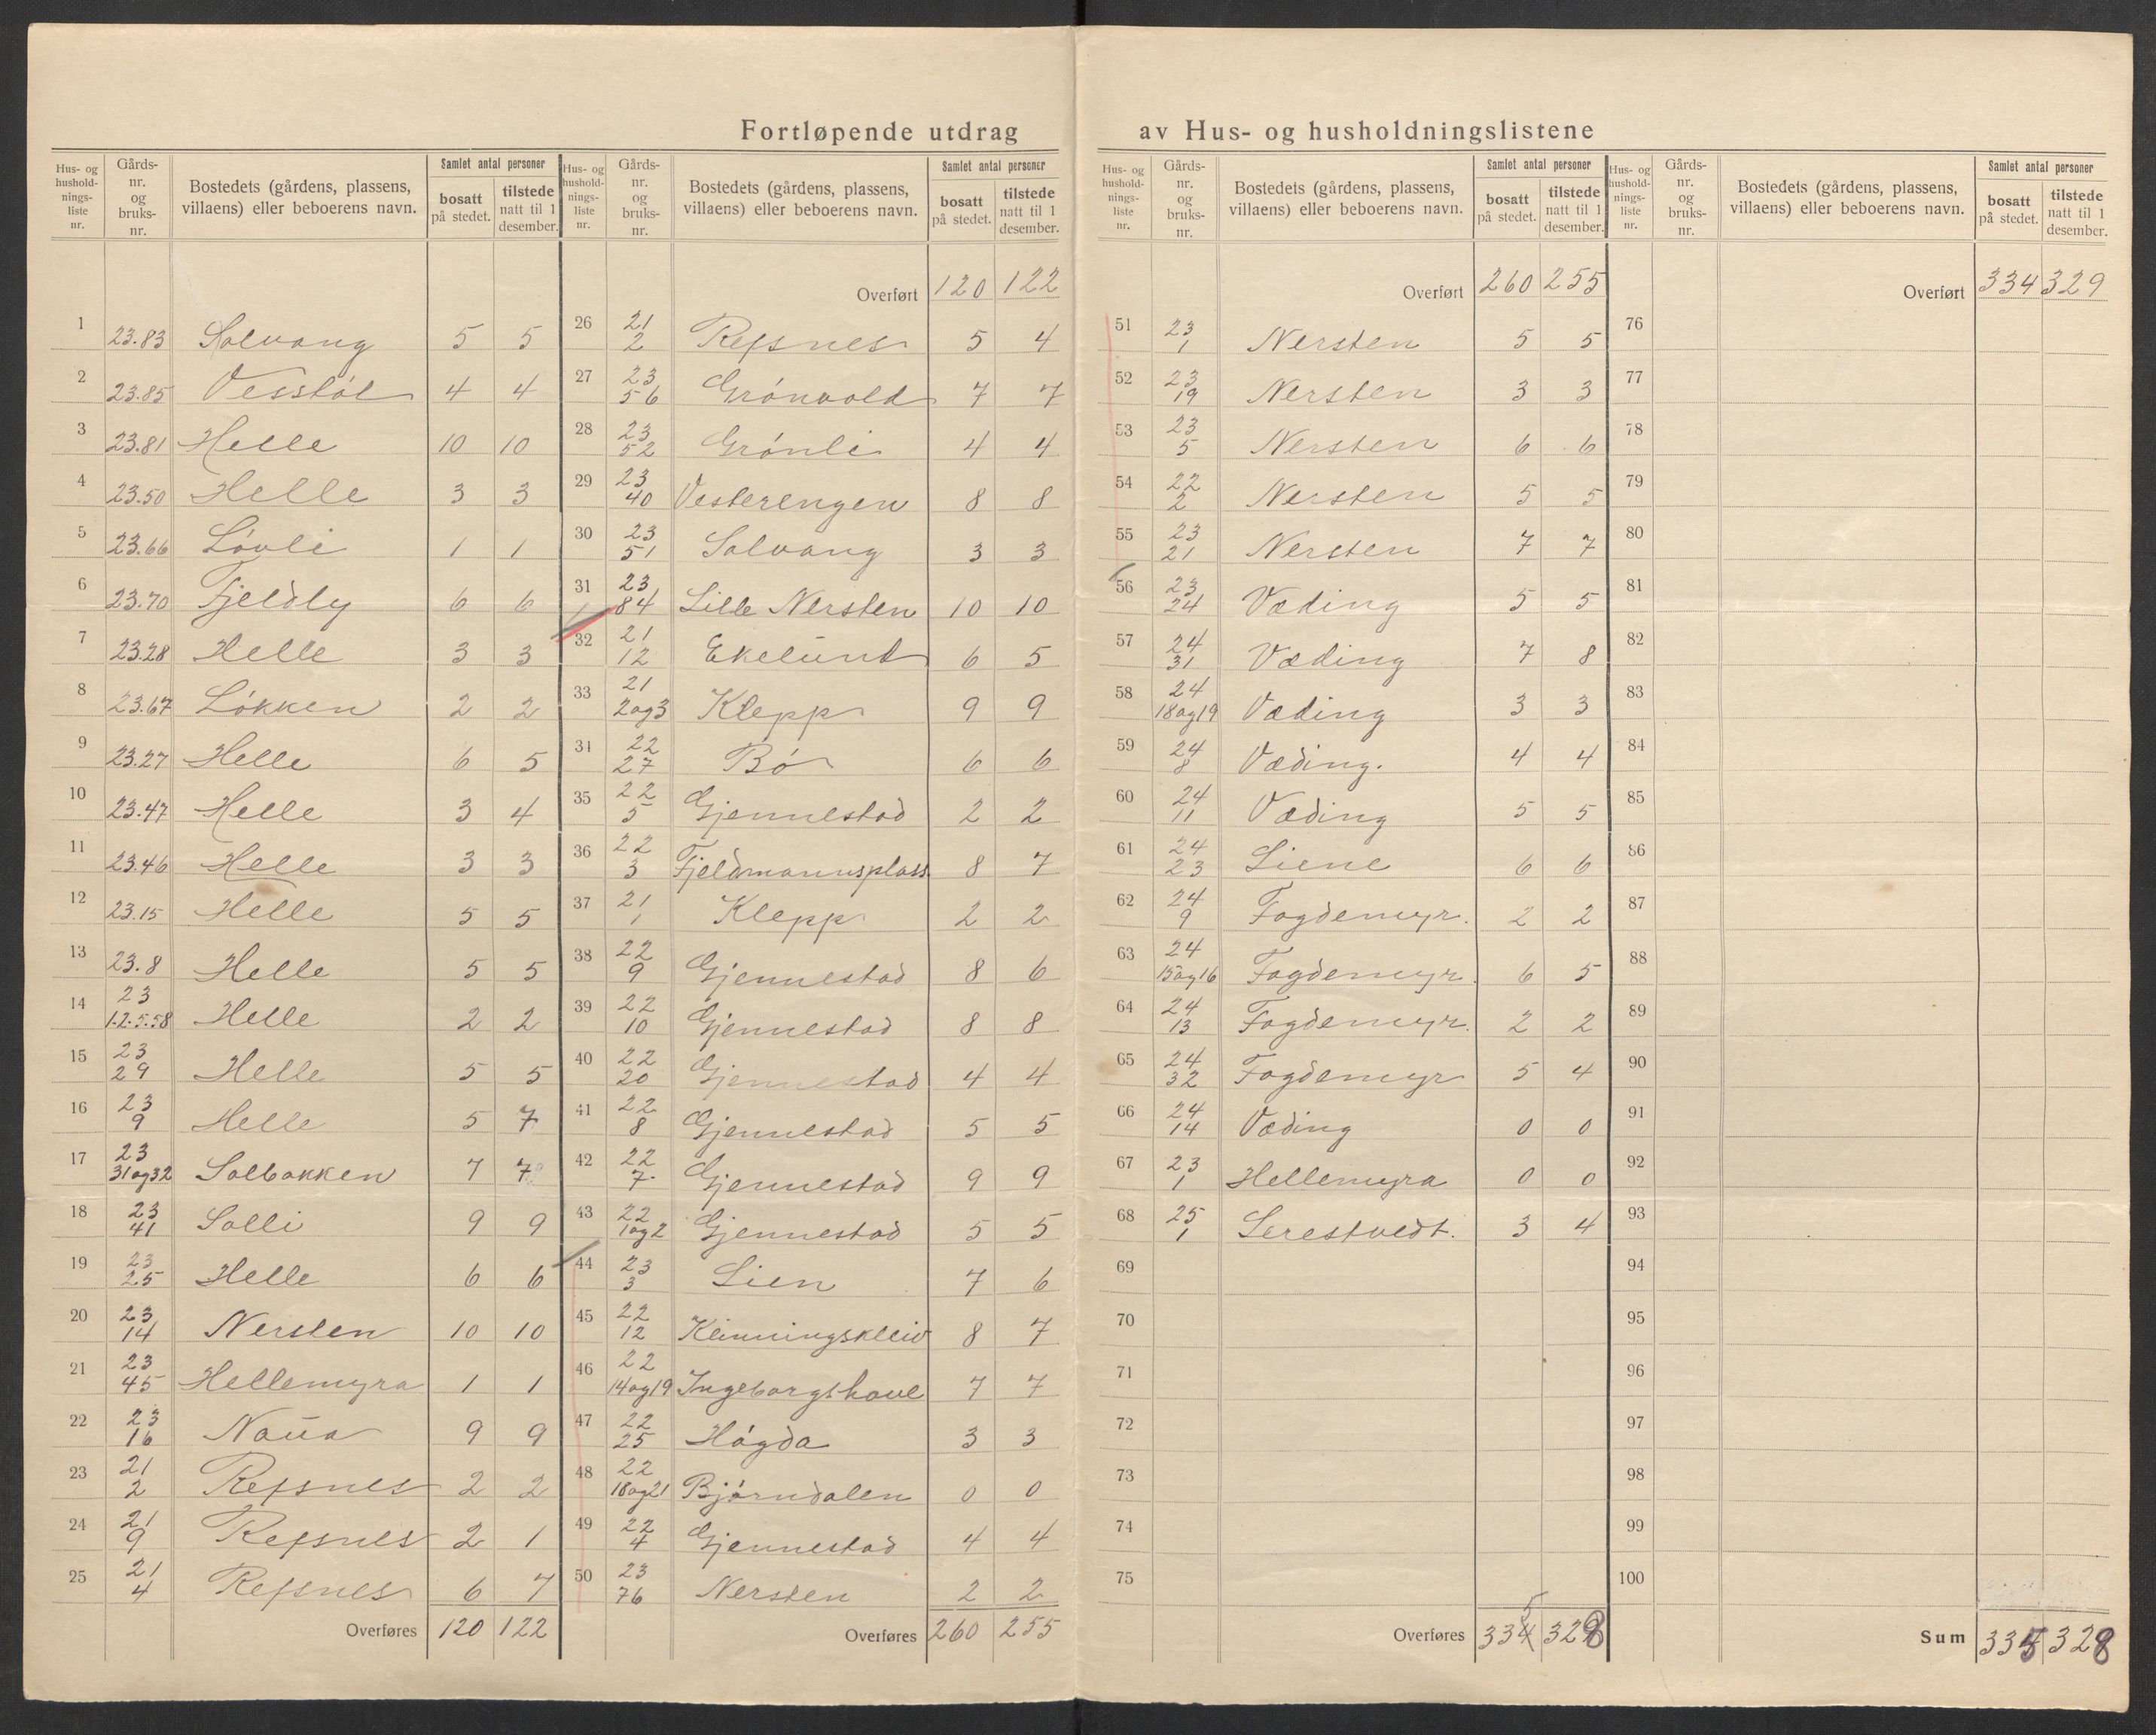 Fortløpende utdrag av Hus- og husholdningslistene
Hus- og husholdnings-liste nr. | Gårds-nr. og bruks-nr. | Bostedets (gårdens, plassens, villaens) eller beboerens navn. | Samlet antal personer bosatt på stedet. | tilstede natt til 1 desember.
1 23.83 Solvang 5 5
2 23.85 Vesstøl 4 4
3 23.81 Helle 10 10
4 23.50 Helle 3 3
5 23.66 Løvli 1 1
6 23.70 Fjeldly 6 6
7 23.28 Helle 3 3
8 23.67 Løkken 2 2
9 23.27 Helle 6 5
10 23.47 Helle 3 4
11 23.46 Helle 3 3
12 23.15 Helle 5 5
13 23.8 Helle 5 5
14 23 1.2.5.58 Helle 2 2
15 23 29 Helle 5 5
16 23 9 Helle 5 7
17 23 31og32 Solbakken 7 7
18 23 41 Solli 9 9
19 23 25 Helle 6 6
20 23 14 Nersten 10 10
21 23 45 Hellemyra 1 1
22 23 16 Naua 9 9
23 21 2 Refsnes 2 2
24 21 9 Refsnes 2 1
25 21 4 Refsnes 6 7
Overføres 120 122
Hus- og husholdnings-liste nr. | Gårds-nr. og bruks-nr. | Bostedets (gårdens, plassens, villaens) eller beboerens navn. | Samlet antal personer bosatt på stedet. | tilstede natt til 1 desember.
Overført 120 122
26 21 2 Refsnes 5 4
27 23 56 Grønvold 7 7
28 23 52 Grønli 4 4
29 23 40 Vesterengen 8 8
30 23 51 Solvang 3 3
31 23 84 Lille Nersten 10 10
32 21 12 Ekelund 6 5
33 21 2og3 Klepp 9 9
34 22 27 Bø 6 6
35 22 5 Gjennestad 2 2
36 22 3 Fjeldmannsplass 8 7
37 21 1 Klepp 2 2
38 22 9 Gjennestad 8 6
39 22 10 Gjennestad 8 8
40 22 20 Gjennestad 4 4
41 22 8 Gjennestad 5 5
42 22 7 Gjennestad 9 9
43 22 1og2 Gjennestad 5 5
44 23 3 Lien 7 6
45 22 12 Kinningskleiv 8 7
46 22 14og19 Ingeborgshoue 7 7
47 22 25 Høgda 3 3
48 22 18og21 Bjørndalen 0 0
49 22 4 Gjennestad 4 4
50 23 76 Nersten 2 2
Overføres 260 255
Hus- og husholdnings-liste nr. | Gårds-nr. og bruks-nr. | Bostedets (gårdens, plassens, villaens) eller beboerens navn. | Samlet antal personer bosatt på stedet. | tilstede natt til 1 desember.
Overført 260 255
51 23 1 Nersten 5 5
52 23 19 Nersten 3 3
53 23 5 Nersten 6 6
54 22 2 Nersten 5 5
55 23 21 Nersten 7 7
56 23 24 Væding 5 5
57 24 31 Væding 7 8
58 24 18og19 Væding 3 3
59 24 8 Væding. 4 4
60 24 11 Væding 5 5
61 24 23 Liene 6 6
62 24 9 Fogdemyr. 2 2
63 24 15og16 Fogdemyr. 6 5
64 24 13 Fogdemyr. 2 2
65 24 32 Fogdemyr 5 4
66 24 14 Væding 0 0
67 23 1 Hellemyra 0 0
68 25 1 Serestvedt. 3 4
69
70
71
72
73
74
75
Overføres 334 5 328
Hus- og husholdnings-liste nr. | Gårds-nr. og bruks-nr. | Bostedets (gårdens, plassens, villaens) eller beboerens navn. | Samlet antal personer bosatt på stedet. | tilstede natt til 1 desember.
Overført 334 329
76
77
78
79
80
81
82
83
84
85
86
87
88
89
90
91
92
93
94
95
96
97
98
99
100
Sum 335 328